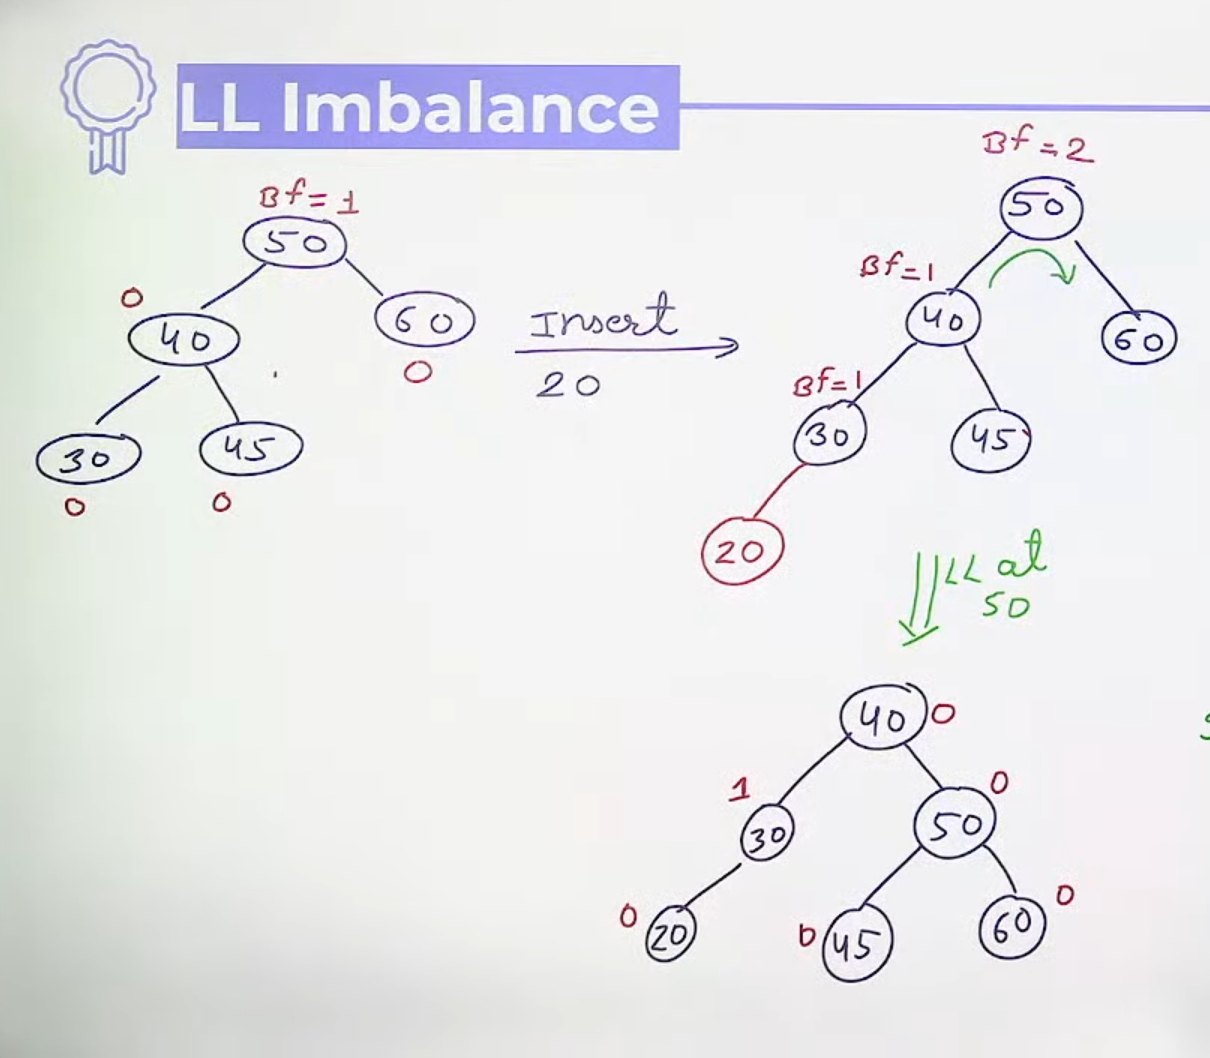 LL Imbalance
Bf = 1
50
0
40
60
0
30
45
0
0
Insert
20
Bf = 2
50
Bf=1
40
60
Bf=1
30
45
20
LL at
50
40
0
1
30
0
50
0
20
0
45
0
60